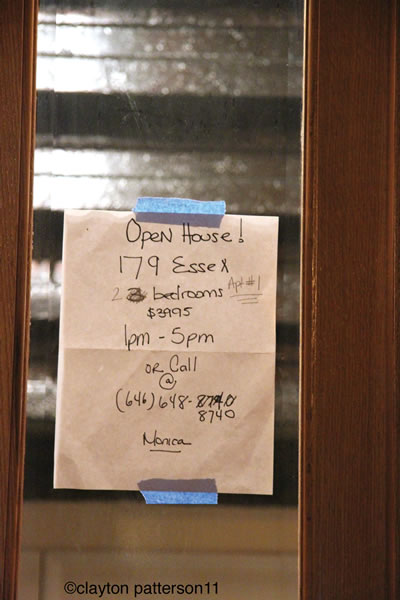 Open House!
179 Essex
2 3 bedrooms Apt #1
$3995
1pm - 5pm
or Call
@
(646) 648-8740
8740
Monica
©clayton patterson11